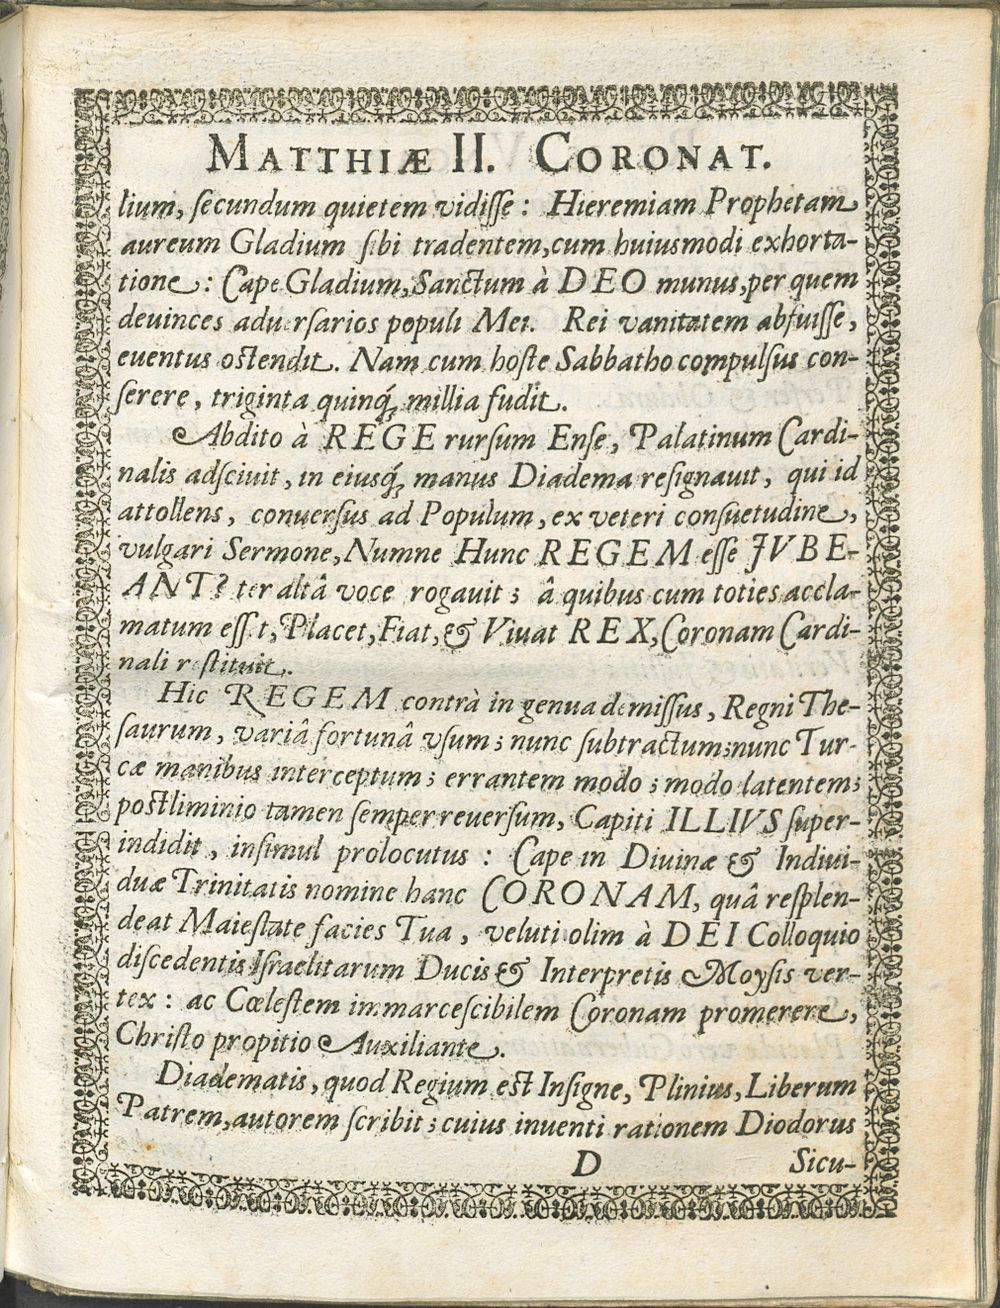 MATTHIÆ II. CORONAT.
lium, ſecundum quietem vidiſſe : Hieremiam Prophetam
aureum Gladium ſibi tradentem, cum huiusmodi exhorta-
tione : Cape Gladium, Sanctum à DEO munus, per quem
deuinces aduerſarios populi Mei. Rei vanitatem abfuiſſe,
euentus oſtendit. Nam cum hoſte Sabbatho compulſus con-
ſerere, triginta quinq́, millia fudit.
Abdito à REGE rurſum Enſe, Palatinum Cardi-
nalis adſciuit, in eiusq́, manus Diadema reſignauit, qui id
attollens, conuerſus ad Populum, ex veteri conſuetudine,
vulgari Sermone, Numne Hunc REGEM eſſe JVBE-
ANT? ter altâ voce rogauit ; â quibus cum toties accla-
matum eſſet, Placet, Fiat, & Viuat REX, Coronam Cardi-
nali reſtituit.
Hic REGEM contrà in genua demiſſus, Regni The-
ſaurum, variâ fortunâ vſum ; nunc ſubtractum ; nunc Tur-
cæ manibus interceptum ; errantem modo ; modo latentem ;
poſtliminio tamen ſemper reuerſum, Capiti ILLIVS ſuper-
indidit, inſimul prolocutus : Cape in Diuinæ & Indiui-
duæ Trinitatis nomine hanc CORONAM, quâ reſplen-
deat Maieſtate facies Tua, veluti olim à DEI Colloquio
diſcedentis Iſraelitarum Ducis & Interpretis Moyſis ver-
tex : ac Cœleſtem immarceſcibilem Coronam promerere,
Chriſto propitio Auxiliante.
Diadematis, quod Regium eſt Inſigne, Plinius, Liberum
Patrem, autorem ſcribit ; cuius inuenti rationem Diodorus
D Sicu-